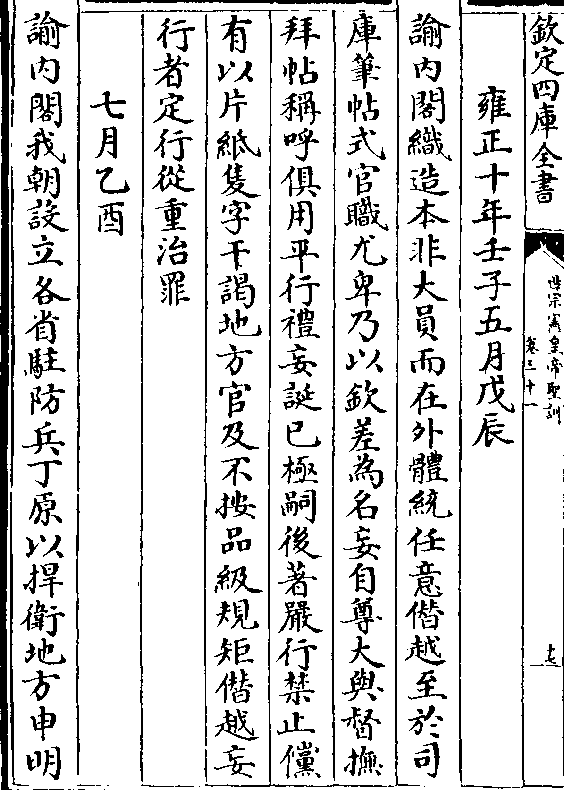 欽定四庫全書
世宗憲皇帝聖訓
卷三十一
十七
雍正十年壬子五月戊辰
諭内閣織造本非大員而在外體統任意僭越至於司
庫筆帖式官職尤卑乃以欽差為名妄自尊大與督撫
拜帖稱呼俱用平行禮妄誕已極嗣後著嚴行禁止儻
有以片紙隻字干謁地方官及不按品級規矩僭越妄
行者定行從重治罪
七月乙酉
諭内閣我朝設立各省駐防兵丁原以捍衛地方申明